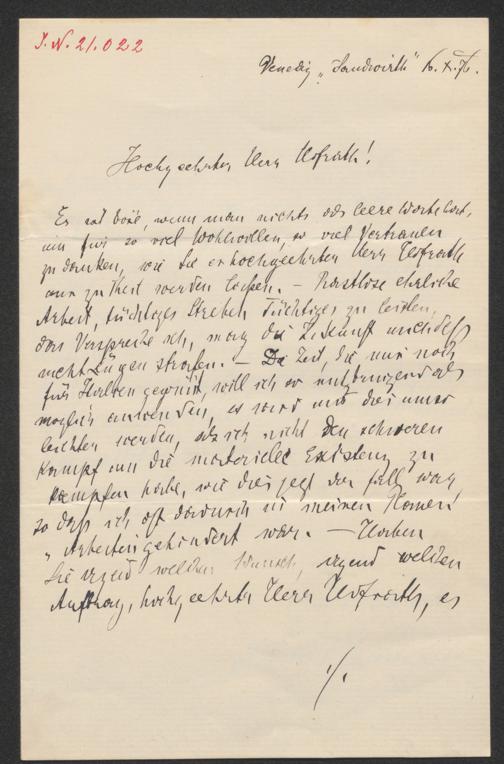 J.N. 21.022
Venedig „Sandwirth"
Hochgeehrter Herr Hofrath!
Es ist böse, wenn man nichts als leere Worte hat,
um für so viel Wohlwollen, so viel Vertrauen
zu danken, wie Sie hochgeehrter Herr Hofrath
mir zu theil werden lassen. – Rastlose ehrliche
Arbeit, tüchtiges Streben Tüchtiges zu leisten,
das verspreche ich, mag die Zukunft mich deß
nicht Lügen strafen. – Die Zeit, die mir noch
fürs Haben, will ich so nutzbringend als
möglich anwenden, es wird mir dies umso
leichter werden, als ich nicht den schweren
Kampf um die materielle Existenz zu
kämpfen habe, wie dies jetzt der Fall war
so daß ich oft dadurch in meinen
Arbeiten gehindert war. – Haben
Sie irgend welchen Wunsch, irgend welchen
Auftrag, hochgeehrter Herr Hofrath, es
./.